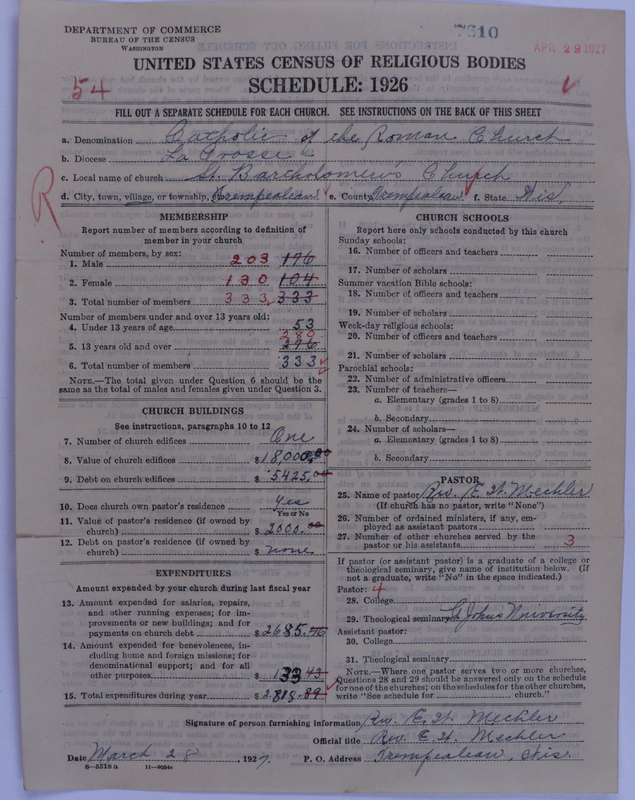 7810
DEPARTMENT OF COMMERCE
BUREAU OF THE CENSUS
WASHINGTON
APR 29 1927
UNITED STATES CENSUS OF RELIGIOUS BODIES
54
SCHEDULE: 1926
FILL OUT A SEPARATE SCHEDULE FOR EACH CHURCH. SEE INSTRUCTIONS ON THE BACK OF THIS SHEET
a. Denomination Catholic of the Roman Church
b. Diocese La Crosse
c. Local name of church St. Bartholomew's Church
d. City, town, village, or township, Trempealeau e. County Trempealeau f. State Wis.
R
MEMBERSHIP
Report number of members according to definition of
member in your church
Number of members, by sex:
1. Male 203 176
2. Female 130 104
3. Total number of members 333 333
Number of members under and over 13 years old:
4. Under 13 years of age 53
280
5. 13 years old and over 276
6. Total number of members 333
NOTE.—The total given under Question 6 should be the
same as the total of males and females given under Question 3.
CHURCH BUILDINGS
See instructions, paragraphs 10 to 12
7. Number of church edifices One
8. Value of church edifices $18,000.00
9. Debt on church edifices $5425.00
10. Does church own pastor's residence? Yes
Yes or No
11. Value of pastor's residence (if owned by
church) $2000.00
12. Debt on pastor's residence (if owned by
church) $ none
EXPENDITURES
Amount expended by your church during last fiscal year
13. Amount expended for salaries, repairs,
and other running expenses; for im-
provements or new buildings; and for
payments on church debt $2685.46
14. Amount expended for benevolences, in-
cluding home and foreign missions; for
denominational support; and for all
other purposes $133.43
15. Total expenditures during year $2818.89
CHURCH SCHOOLS
Report here only schools conducted by this church
Sunday schools:
16. Number of officers and teachers
17. Number of scholars
Summer vacation Bible schools:
18. Number of officers and teachers
19. Number of scholars
Week-day religious schools:
20. Number of officers and teachers
21. Number of scholars
Parochial schools:
22. Number of administrative officers
23. Number of teachers—
a. Elementary (grades 1 to 8)
b. Secondary
24. Number of scholars—
a. Elementary (grades 1 to 8)
b. Secondary
PASTOR
25. Name of pastor Rev. E. W. Mechler
(If church has no pastor, write "None")
26. Number of ordained ministers, if any, em-
ployed as assistant pastors
27. Number of other churches served by the
pastor or his assistants 3
If pastor (or assistant pastor) is a graduate of a college or
theological seminary, give name of institution below. (If
not a graduate, write "No" in the space indicated.)
Pastor: 4
28. College
29. Theological seminary St Johns University
Assistant pastor:
30. College
31. Theological seminary
NOTE.—Where one pastor serves two or more churches,
Questions 28 and 29 should be answered only on the schedule
for one of the churches; on the schedules for the other churches,
write "See schedule for church."
Signature of person furnishing information Rev. E. W. Mechler
Official title Rev. E. W. Mechler
Date March 28, 1927 P. O. Address Trempealeau, Wis.
8—5318 a 11—9034a